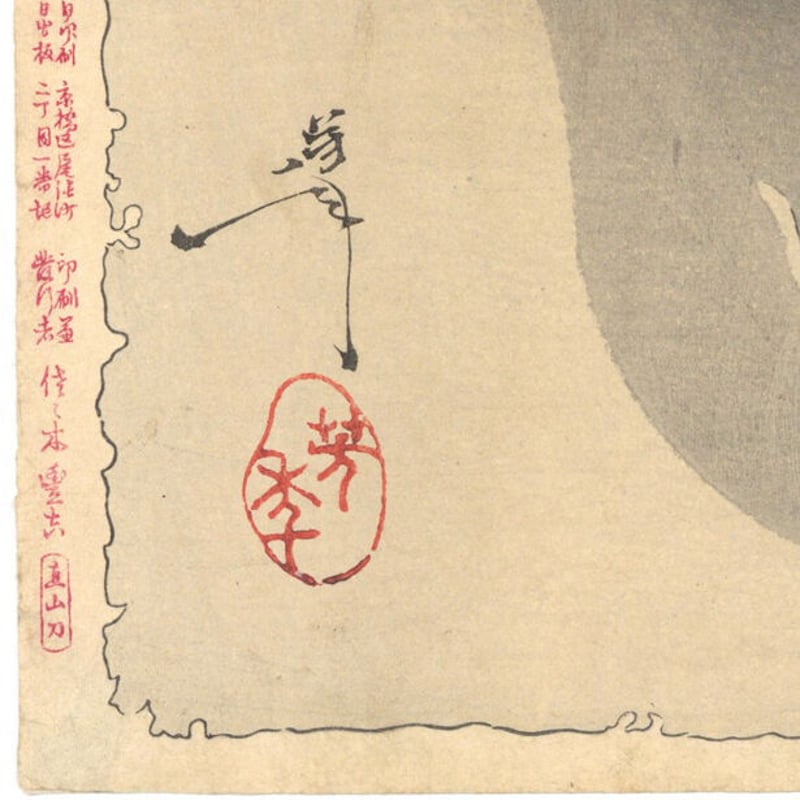 芳年
芳季
日印刷 京橋区尾張町 印刷兼
日出板 二丁目一番地 發行者
佐々木豐吉
直山刀